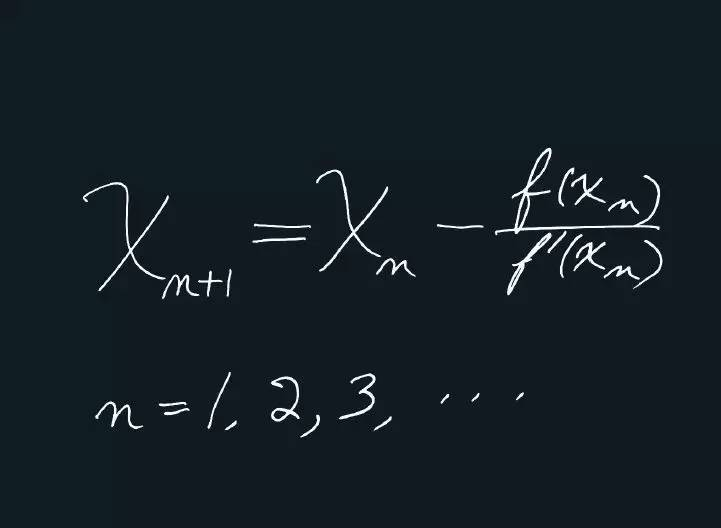 x_{n+1} = x_n - \frac{f(x_n)}{f'(x_n)}
n = 1, 2, 3, ...